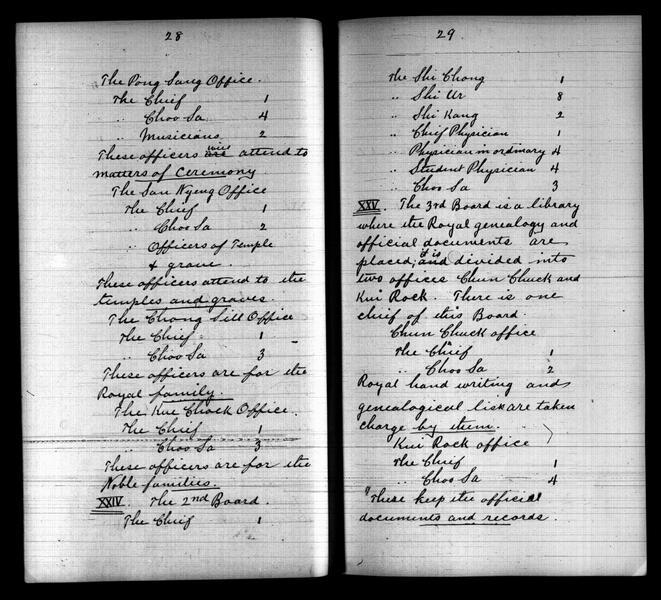 28
The Pong Sang Office.
The Chief 1
" Choo Sa 4
" Musicians 2
These officers will attend to
matters of Ceremony
The San Nyeng Office
The Chief 1
" Choo Sa 2
" Officers of Temple
& grave.
These officers attend to the
temples and graves.
The Chong Sill Office
The Chief 1
" Choo Sa 3
These officers are for the
Royal family
The Kui Chock Office.
The Chief 1
" Choo Sa 3
These officers are for the
Noble families.
XXIV. The 2nd Board.
The Chief 1
29
The Shi Chong 1
" Shi Ur 8
" Shi Kang 2
" Chief Physician 1
" Physician in ordinary 4
" Student Physician 4
" Choo Sa 3
XXV. The 3rd Board is a library
where the Royal genealogy and
official documents are
placed; it is divided into
two offices Chun Chuck and
Kui Rock. There is one
chief of this Board.
Chun Chuck office
The Chief 1
" Choo Sa 2
Royal hand writing and
genealogical lists are taken
charge by them.
Kui Rock office
The Chief 1
" Choo Sa 4
These keep the official
documents and records.